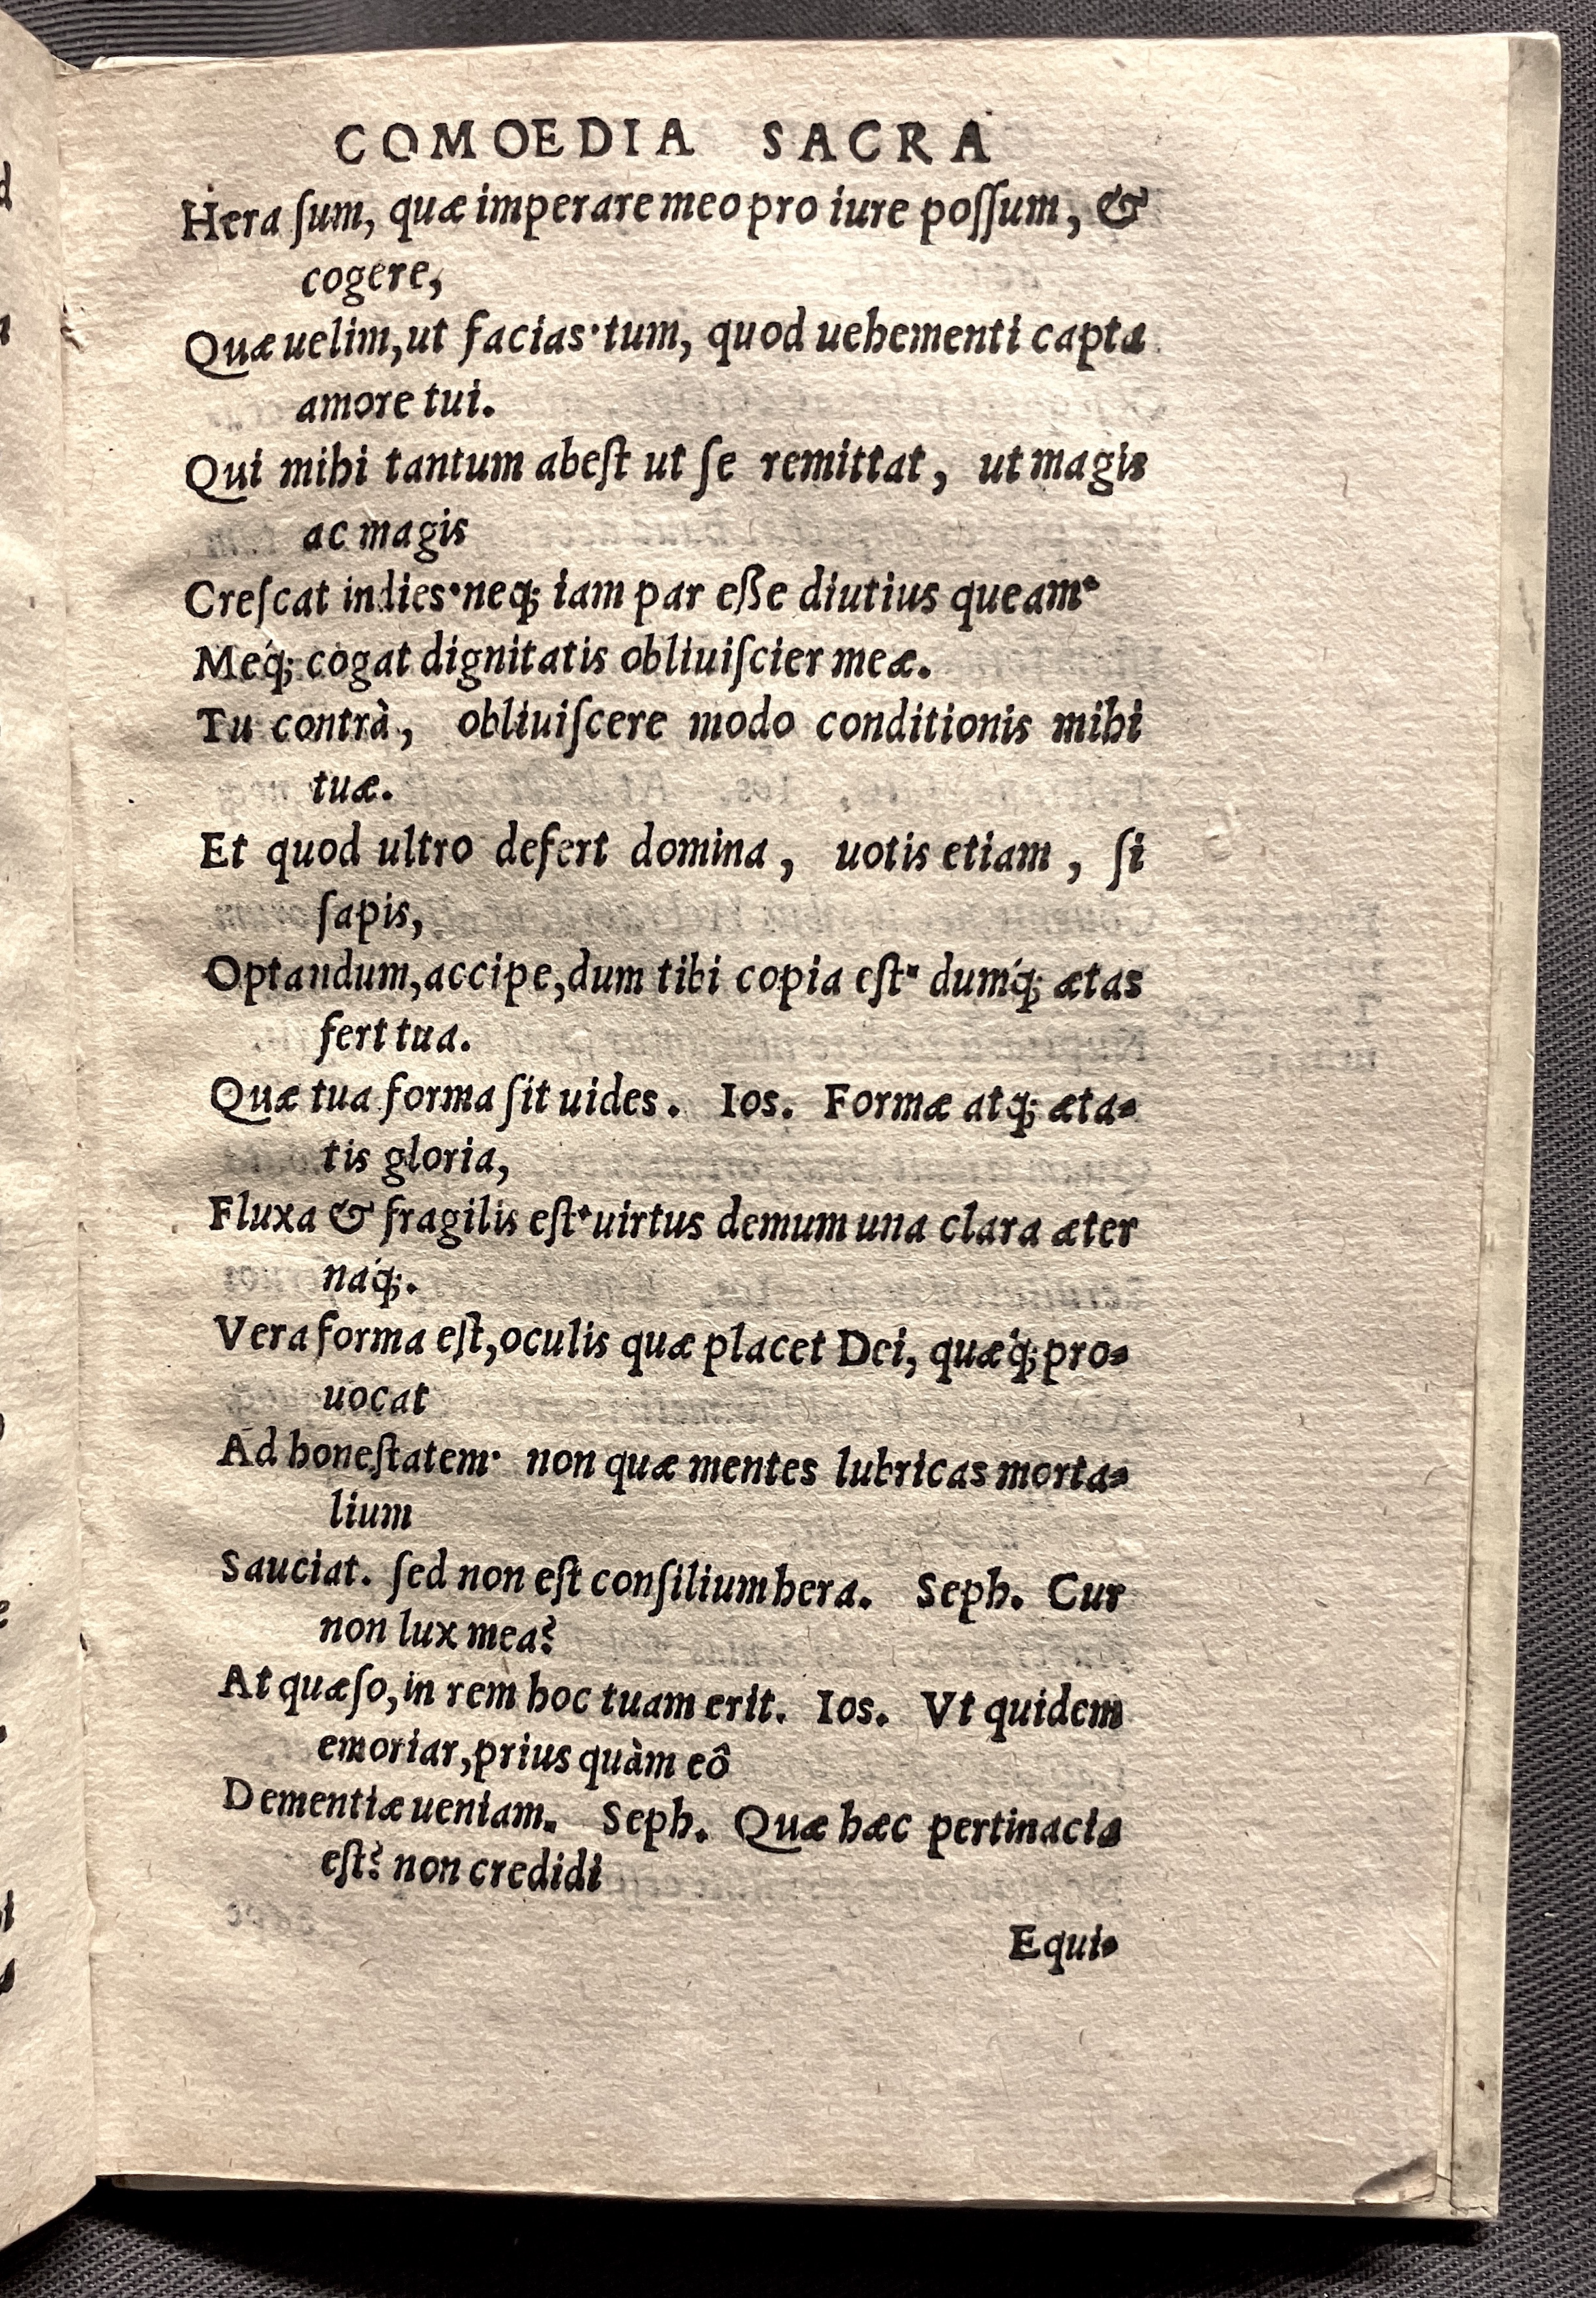 COMOEDIA SACRA
Hera ſum, quæ imperare meo pro iure poſſum, &
cogere,
Quæ uelim, ut facias· tum, quod uehementi capta
amore tui.
Qui mihi tantum abeſt ut ſe remittat, ut magis
ac magis
Creſcat indies· neq; iam par eſſe diutius queam·
Meq́; cogat dignitatis obliuiſcier meæ.
Tu contrà, obliuiſcere modo conditionis mihi
tuæ.
Et quod ultro defert domina, uotis etiam, ſi
ſapis,
Optandum, accipe, dum tibi copia eſt· dumq́; ætas
fert tua.
Quæ tua forma ſit uides. Ios. Formæ atq; æta-
tis gloria,
Fluxa & fragilis eſt· uirtus demum una clara æter
naq́;.
Vera forma eſt, oculis quæ placet Dei, quæq́; pro-
uocat
Ad honeſtatem· non quæ mentes lubricas morta-
lium
Sauciat. ſed non eſt conſilium hera. Seph. Cur
non lux mea?
At quæſo, in rem hoc tuam erit. Ios. Vt quidem
emoriar, prius quàm eô
Dementiæ ueniam. Seph. Quæ hæc pertinacia
eſt? non credidi
Equi-